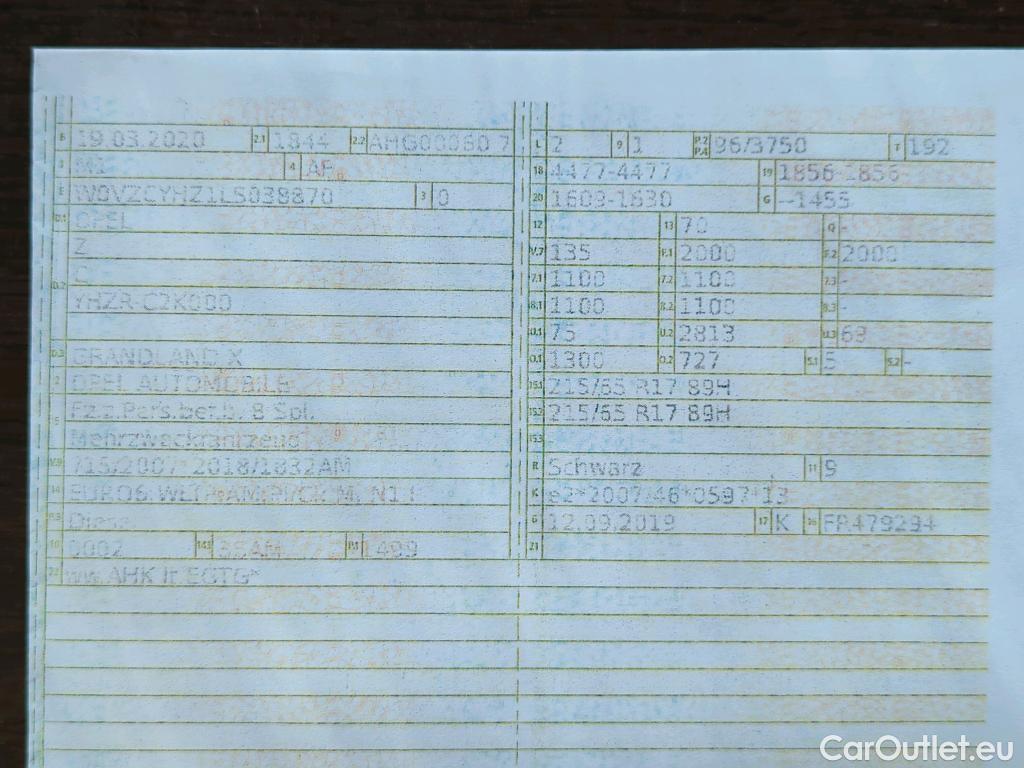 B 19.03.2020 2.1 1844 2.2 AMG00060 7
J M1 4 AF
E W0VZCYHZ1LS038870 3 0
D.1 OPEL
Z
D.2 C
YHZR-C2K000
D.3 GRANDLAND X
2 OPEL AUTOMOBILE
5 Fz.z.Pers.bef.b. 8 Spl.
Mehrzweckfahrzeug
V.9 715/2007*2018/1832AM
14
P.3 Diesel
10 0002 14.1 36AM P.1 1499
22 ww.AHK lt.EGTG*
L 2 9 1 P.2 P.4 96/3750 T 192
18 4477-4477 19 1856-1856
20 1609-1630 G --1455
12 - 13 70 Q -
V.7 135 F.1 2000 F.2 2000
7.1 1100 7.2 1100 7.3 -
8.1 1100 8.2 1100 8.3 -
U.1 75 U.2 2813 U.3 69
O.1 1300 O.2 727 S.1 5 S.2 -
15.1 215/65 R17 99H
15.2 215/65 R17 99H
15.3
R Schwarz 11 9
K e2*2007/46*0597*13
6 12.09.2019 17 K 16 FR479294
21
CarOutlet.eu